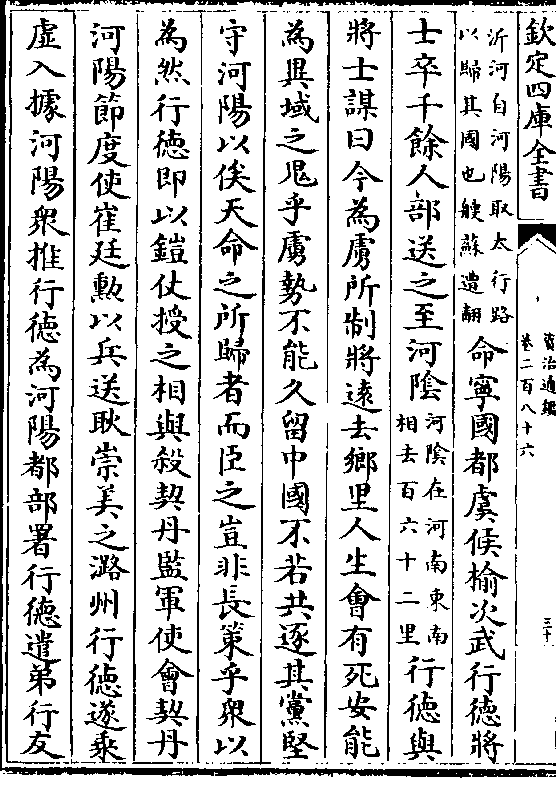 欽定四庫全書
資治通鑑
卷二百八十六
三十
沂河自河陽取太行路
以歸其國也艘蘇遭翻
命寧國都虞候榆次武行德將
士卒千餘人部送之至河陰
河陰在河南東南
相去百六十二里
行德與
將士謀曰今為虜所制將遠去鄉里人生會有死安能
為異域之鬼乎虜勢不能久留中國不若共逐其黨堅
守河陽以俟天命之所歸者而臣之豈非長策乎衆以
為然行德即以鎧仗授之相與殺契丹監軍使會契丹
河陽節度使崔廷勲以兵送耿崇美之潞州行德遂乘
虛入據河陽衆推行德為河陽都部署行德遣弟行友